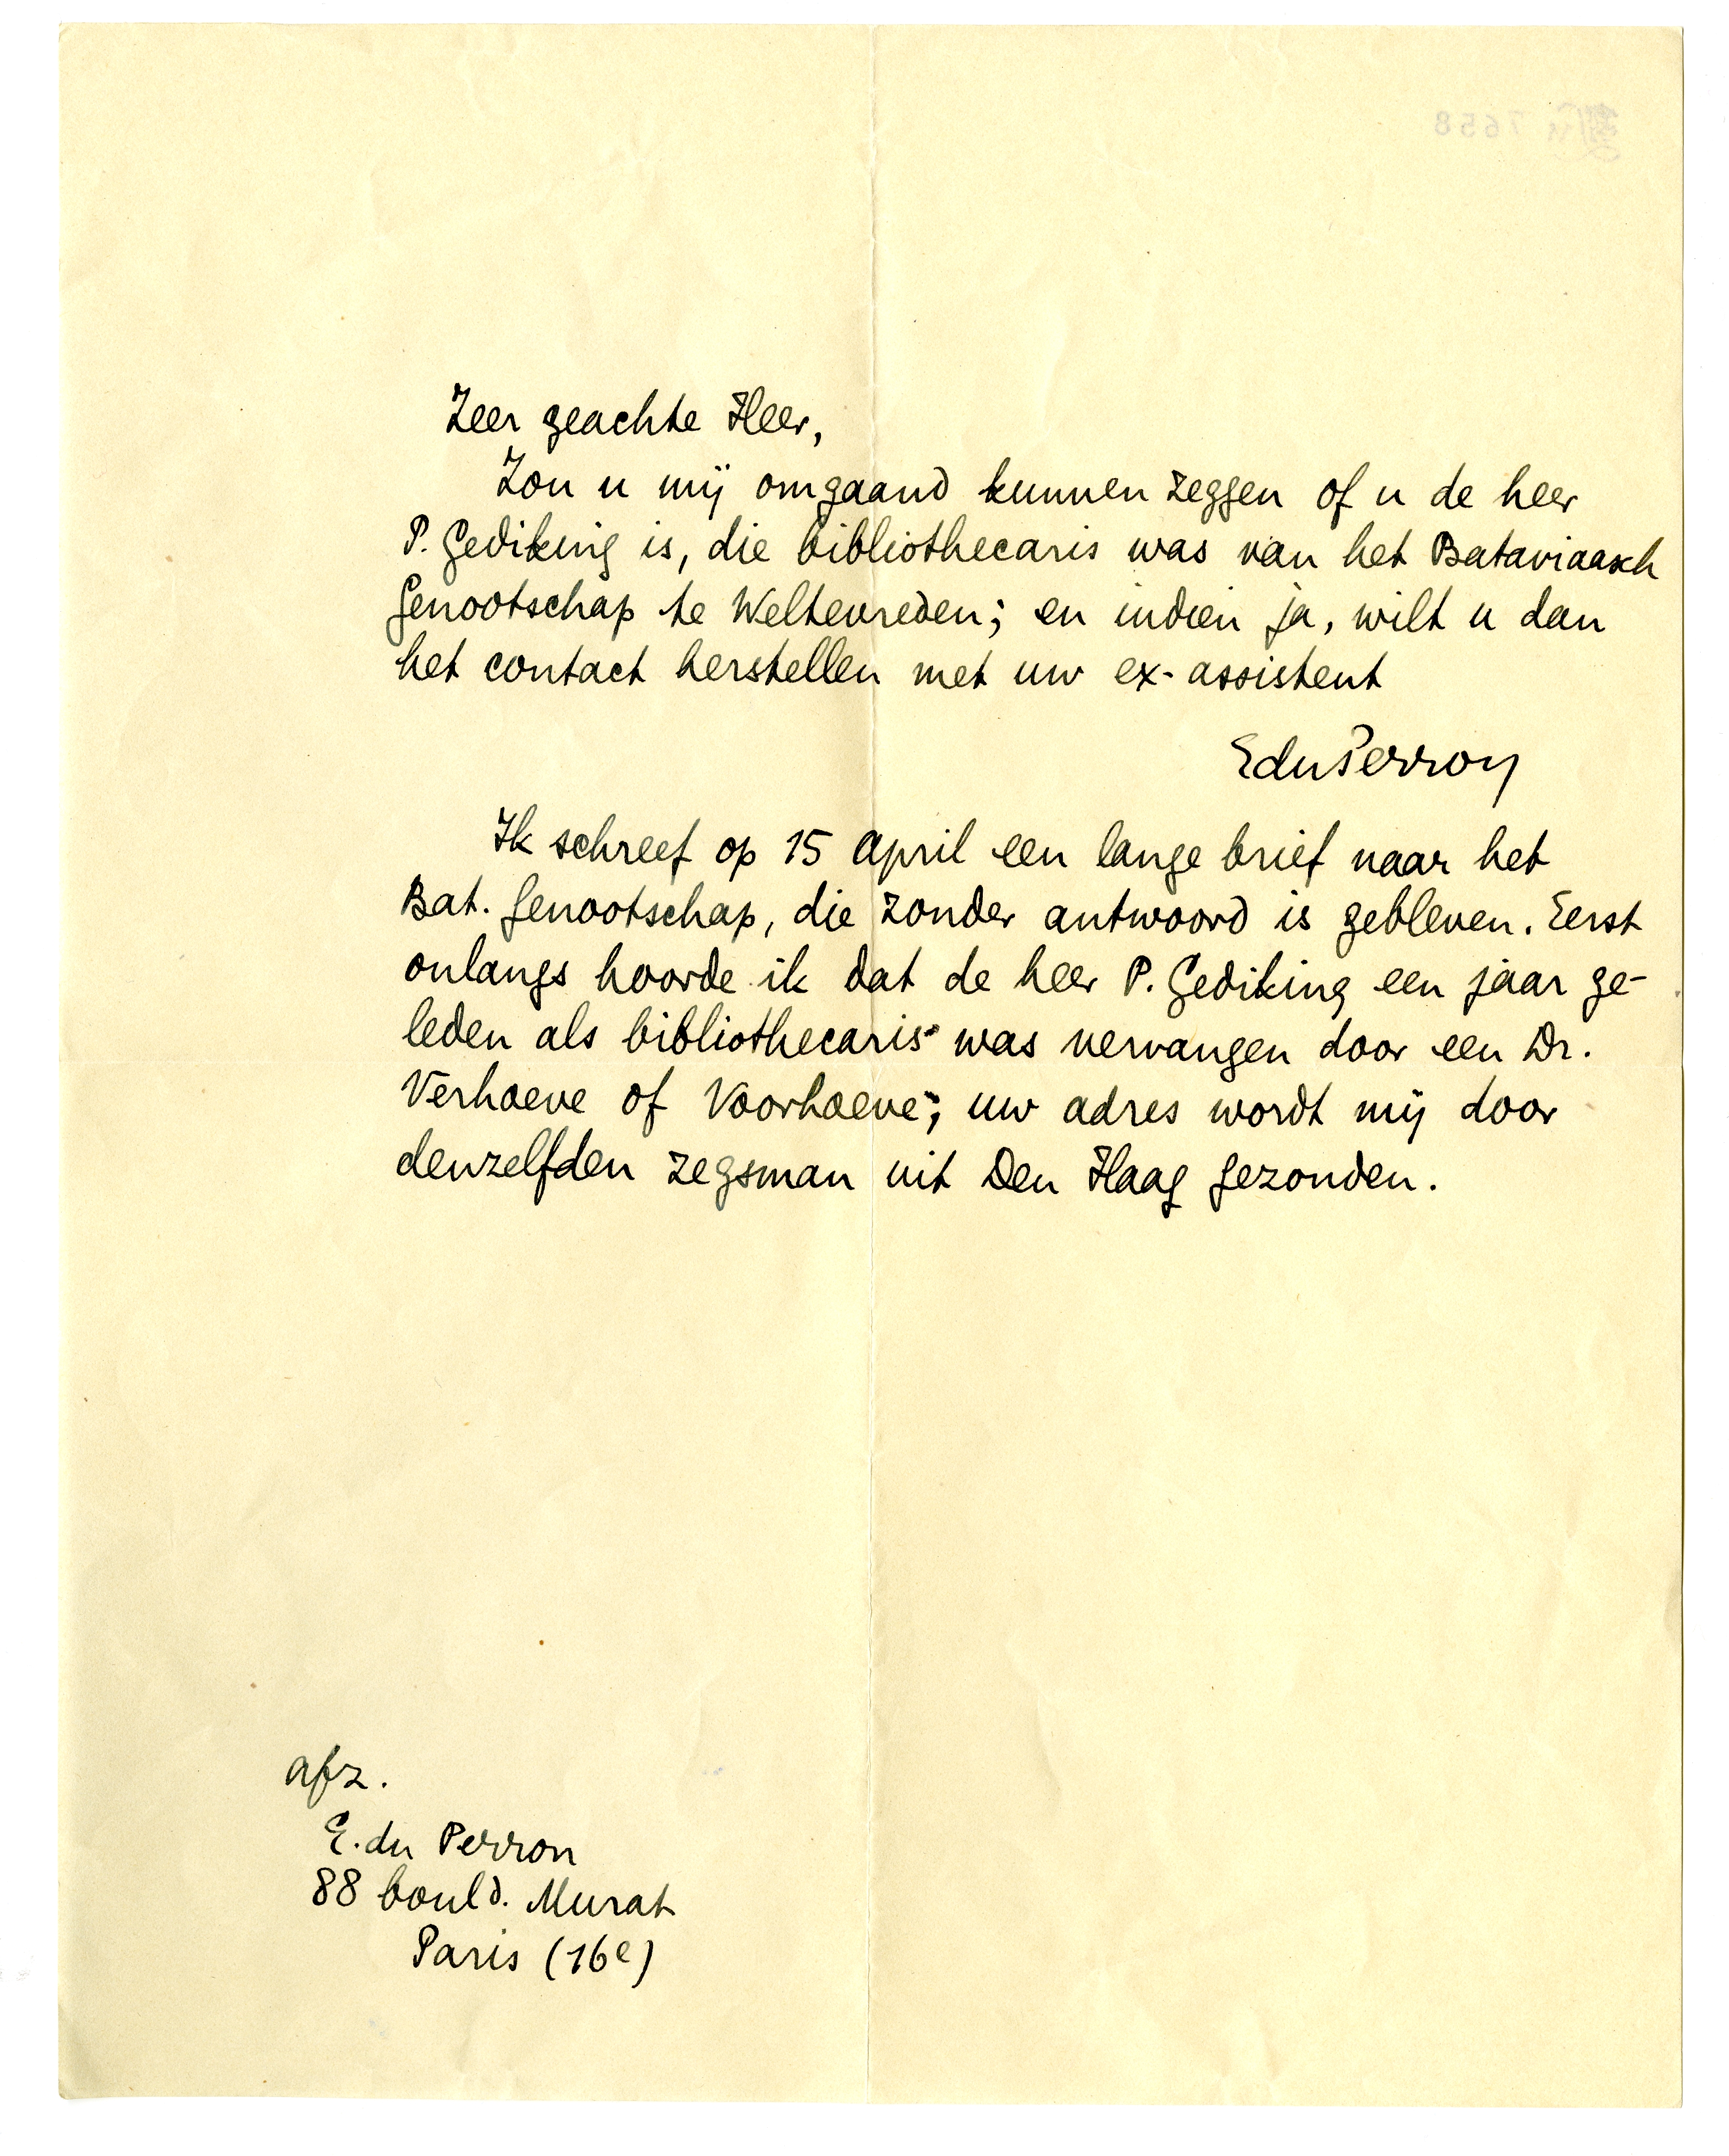 Zeer geachte Heer,
Zou u mij omgaand kunnen zeggen of u de heer
P. Gediking is, die bibliothecaris was van het Bataviaasch
Genootschap te Weltevreden; en indien ja, wilt u dan
het contact herstellen met uw ex-assistent
EduPerron
Ik schreef op 15 April een lange brief naar het
Bat. Genootschap, die zonder antwoord is gebleven. Eerst
onlangs hoorde ik dat de heer P. Gediking een jaar ge-
leden als bibliothecaris was vervangen door een Dr.
Verhoeve of Voorhoeve; uw adres wordt mij door
denzelfden zegsman uit Den Haag gezonden.
afz.
E. du Perron
88 bould. Murat
Paris (16e)